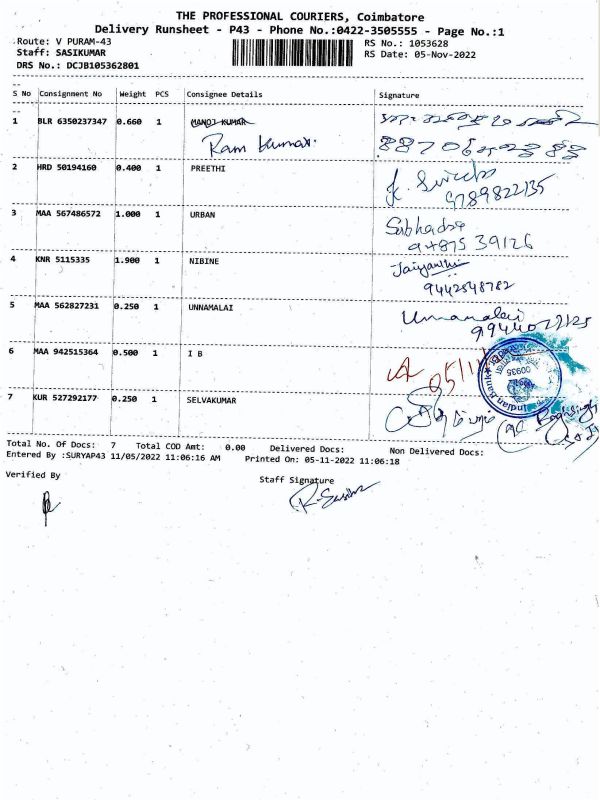 THE PROFESSIONAL COURIERS, Coimbatore
Delivery Runsheet - P43 - Phone No.:0422-3505555 - Page No.:1
Route: V PURAM-43
RS No.: 1053628
Staff: SASIKUMAR
RS Date: 05-Nov-2022
DRS No.: DCJB105362801
S No Consignment No Weight PCS Consignee Details Signature
1 BLR 6350237347 0.660 1 MANOJ KUMAR
Ram kumar.
2 HRD 50194160 0.400 1 PREETHI
9789822135
3 MAA 567486572 1.000 1 URBAN Subhadra
94875 39126
4 KNR 5115335 1.900 1 NIBINE Jaiyanthi
9442548782
5 MAA 562827231 0.250 1 UNNAMALAI Unnamalai
6 MAA 942515364 0.500 1 I B
05/11
Indian Bank
00935
7 KUR 527292177 0.250 1 SELVAKUMAR
Total No. Of Docs: 7 Total COD Amt: 0.00 Delivered Docs: Non Delivered Docs:
Entered By :SURYAP43 11/05/2022 11:06:16 AM Printed On: 05-11-2022 11:06:18
Verified By
Staff Signature
R. Sasikumar